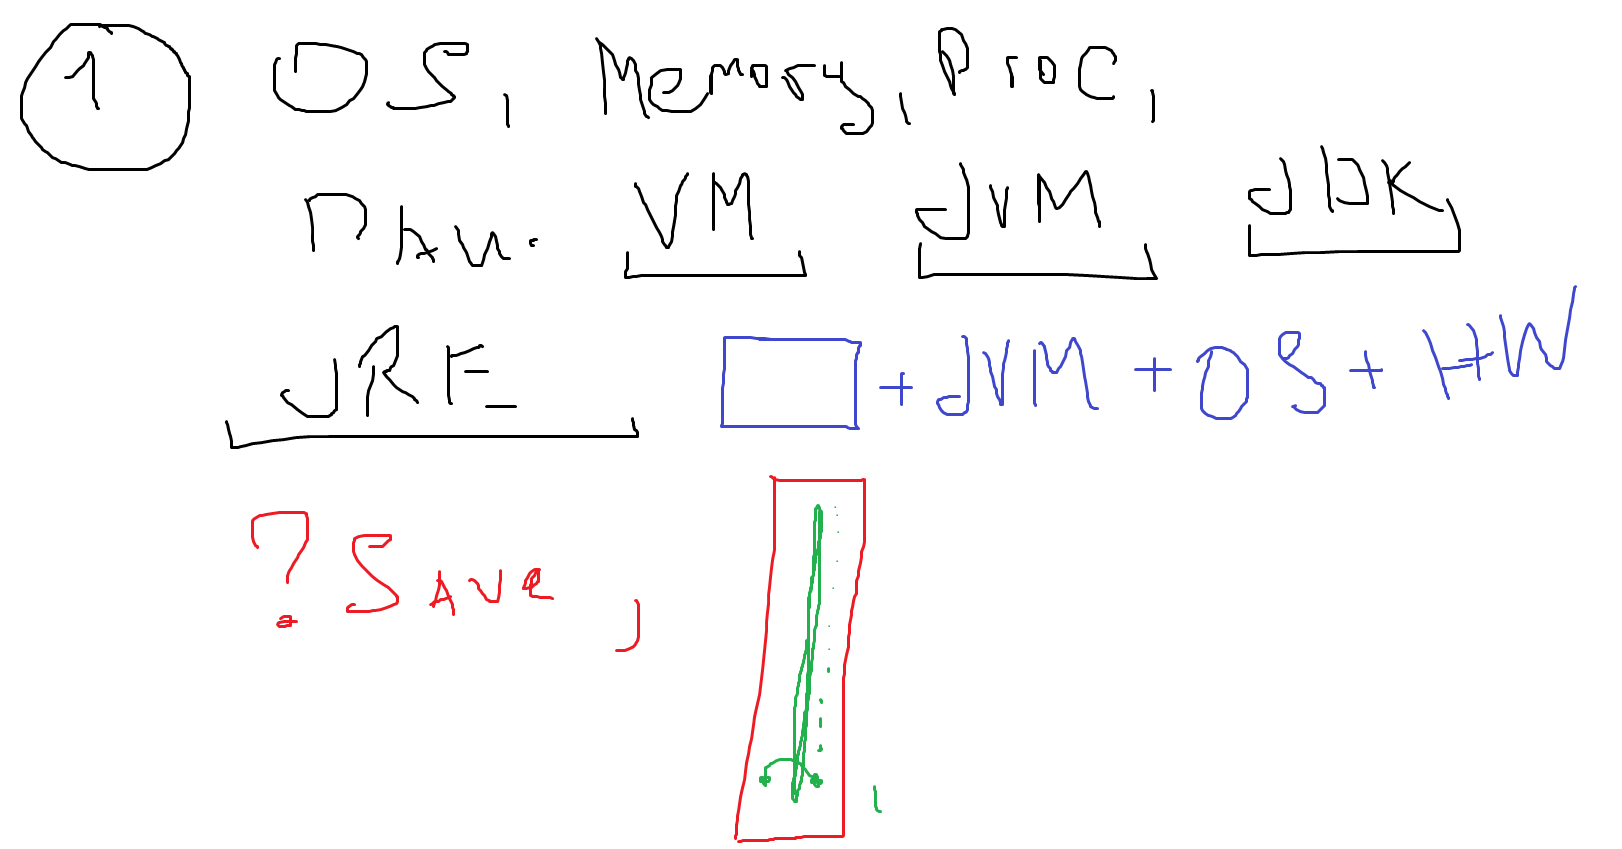 1 OS, Memory, Proc,
VM JVM JDK
JRE + JVM + OS + HW
? Save,